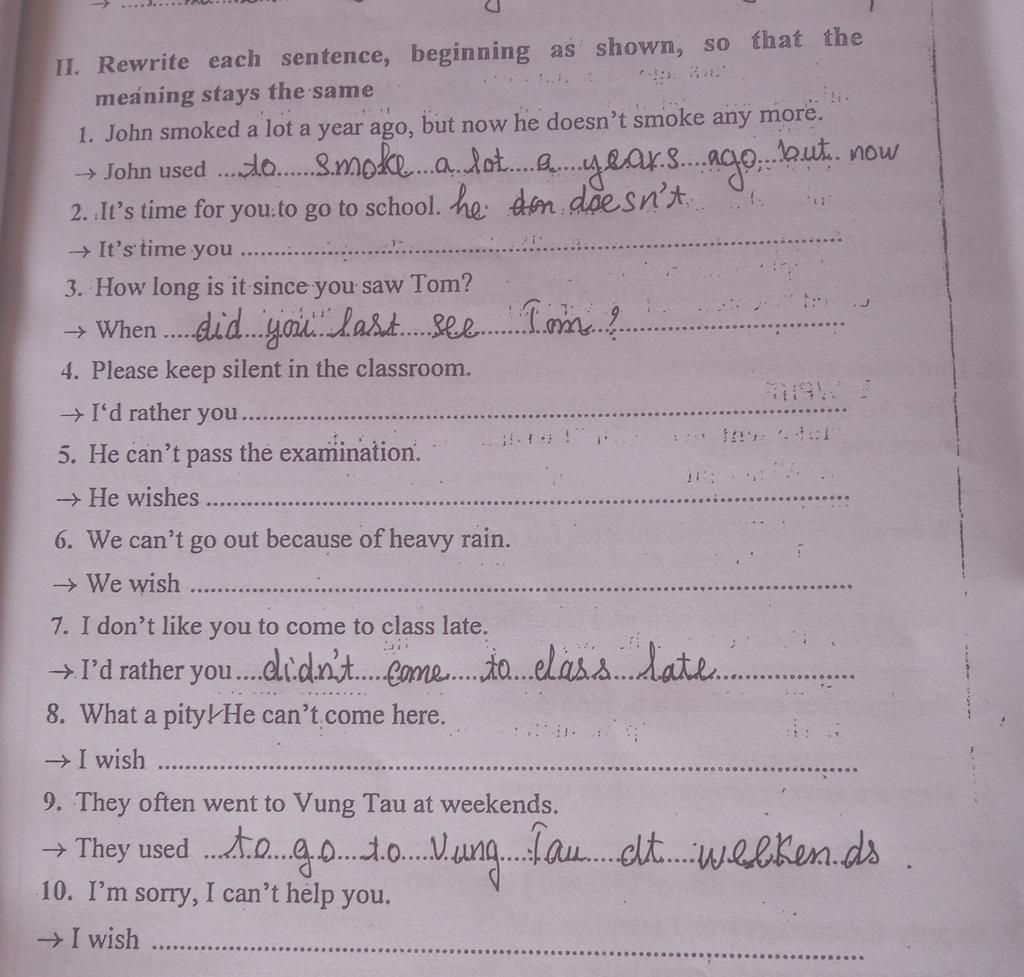 II. Rewrite each sentence, beginning as shown, so that the
meaning stays the same
1. John smoked a lot a year ago, but now he doesn't smoke any more.
→ John used ....to......smoke...a..lot....a....years....ago,..but. now
2. It's time for you to go to school. he don doesn't
→ It's time you ..........................................................................
3. How long is it since you saw Tom?
→ When .....did...you...last....see.......Tom..?..............................
4. Please keep silent in the classroom.
→ I'd rather you..........................................................................
5. He can't pass the examination.
→ He wishes ..............................................................................
6. We can't go out because of heavy rain.
→ We wish ................................................................................
7. I don't like you to come to class late.
→ I'd rather you....didn't....come....to...class...late..................
8. What a pity! He can't come here.
→ I wish ....................................................................................
9. They often went to Vung Tau at weekends.
→ They used ...to...go...to...Vung...Tau....at....weekends .
10. I'm sorry, I can't help you.
→ I wish ....................................................................................